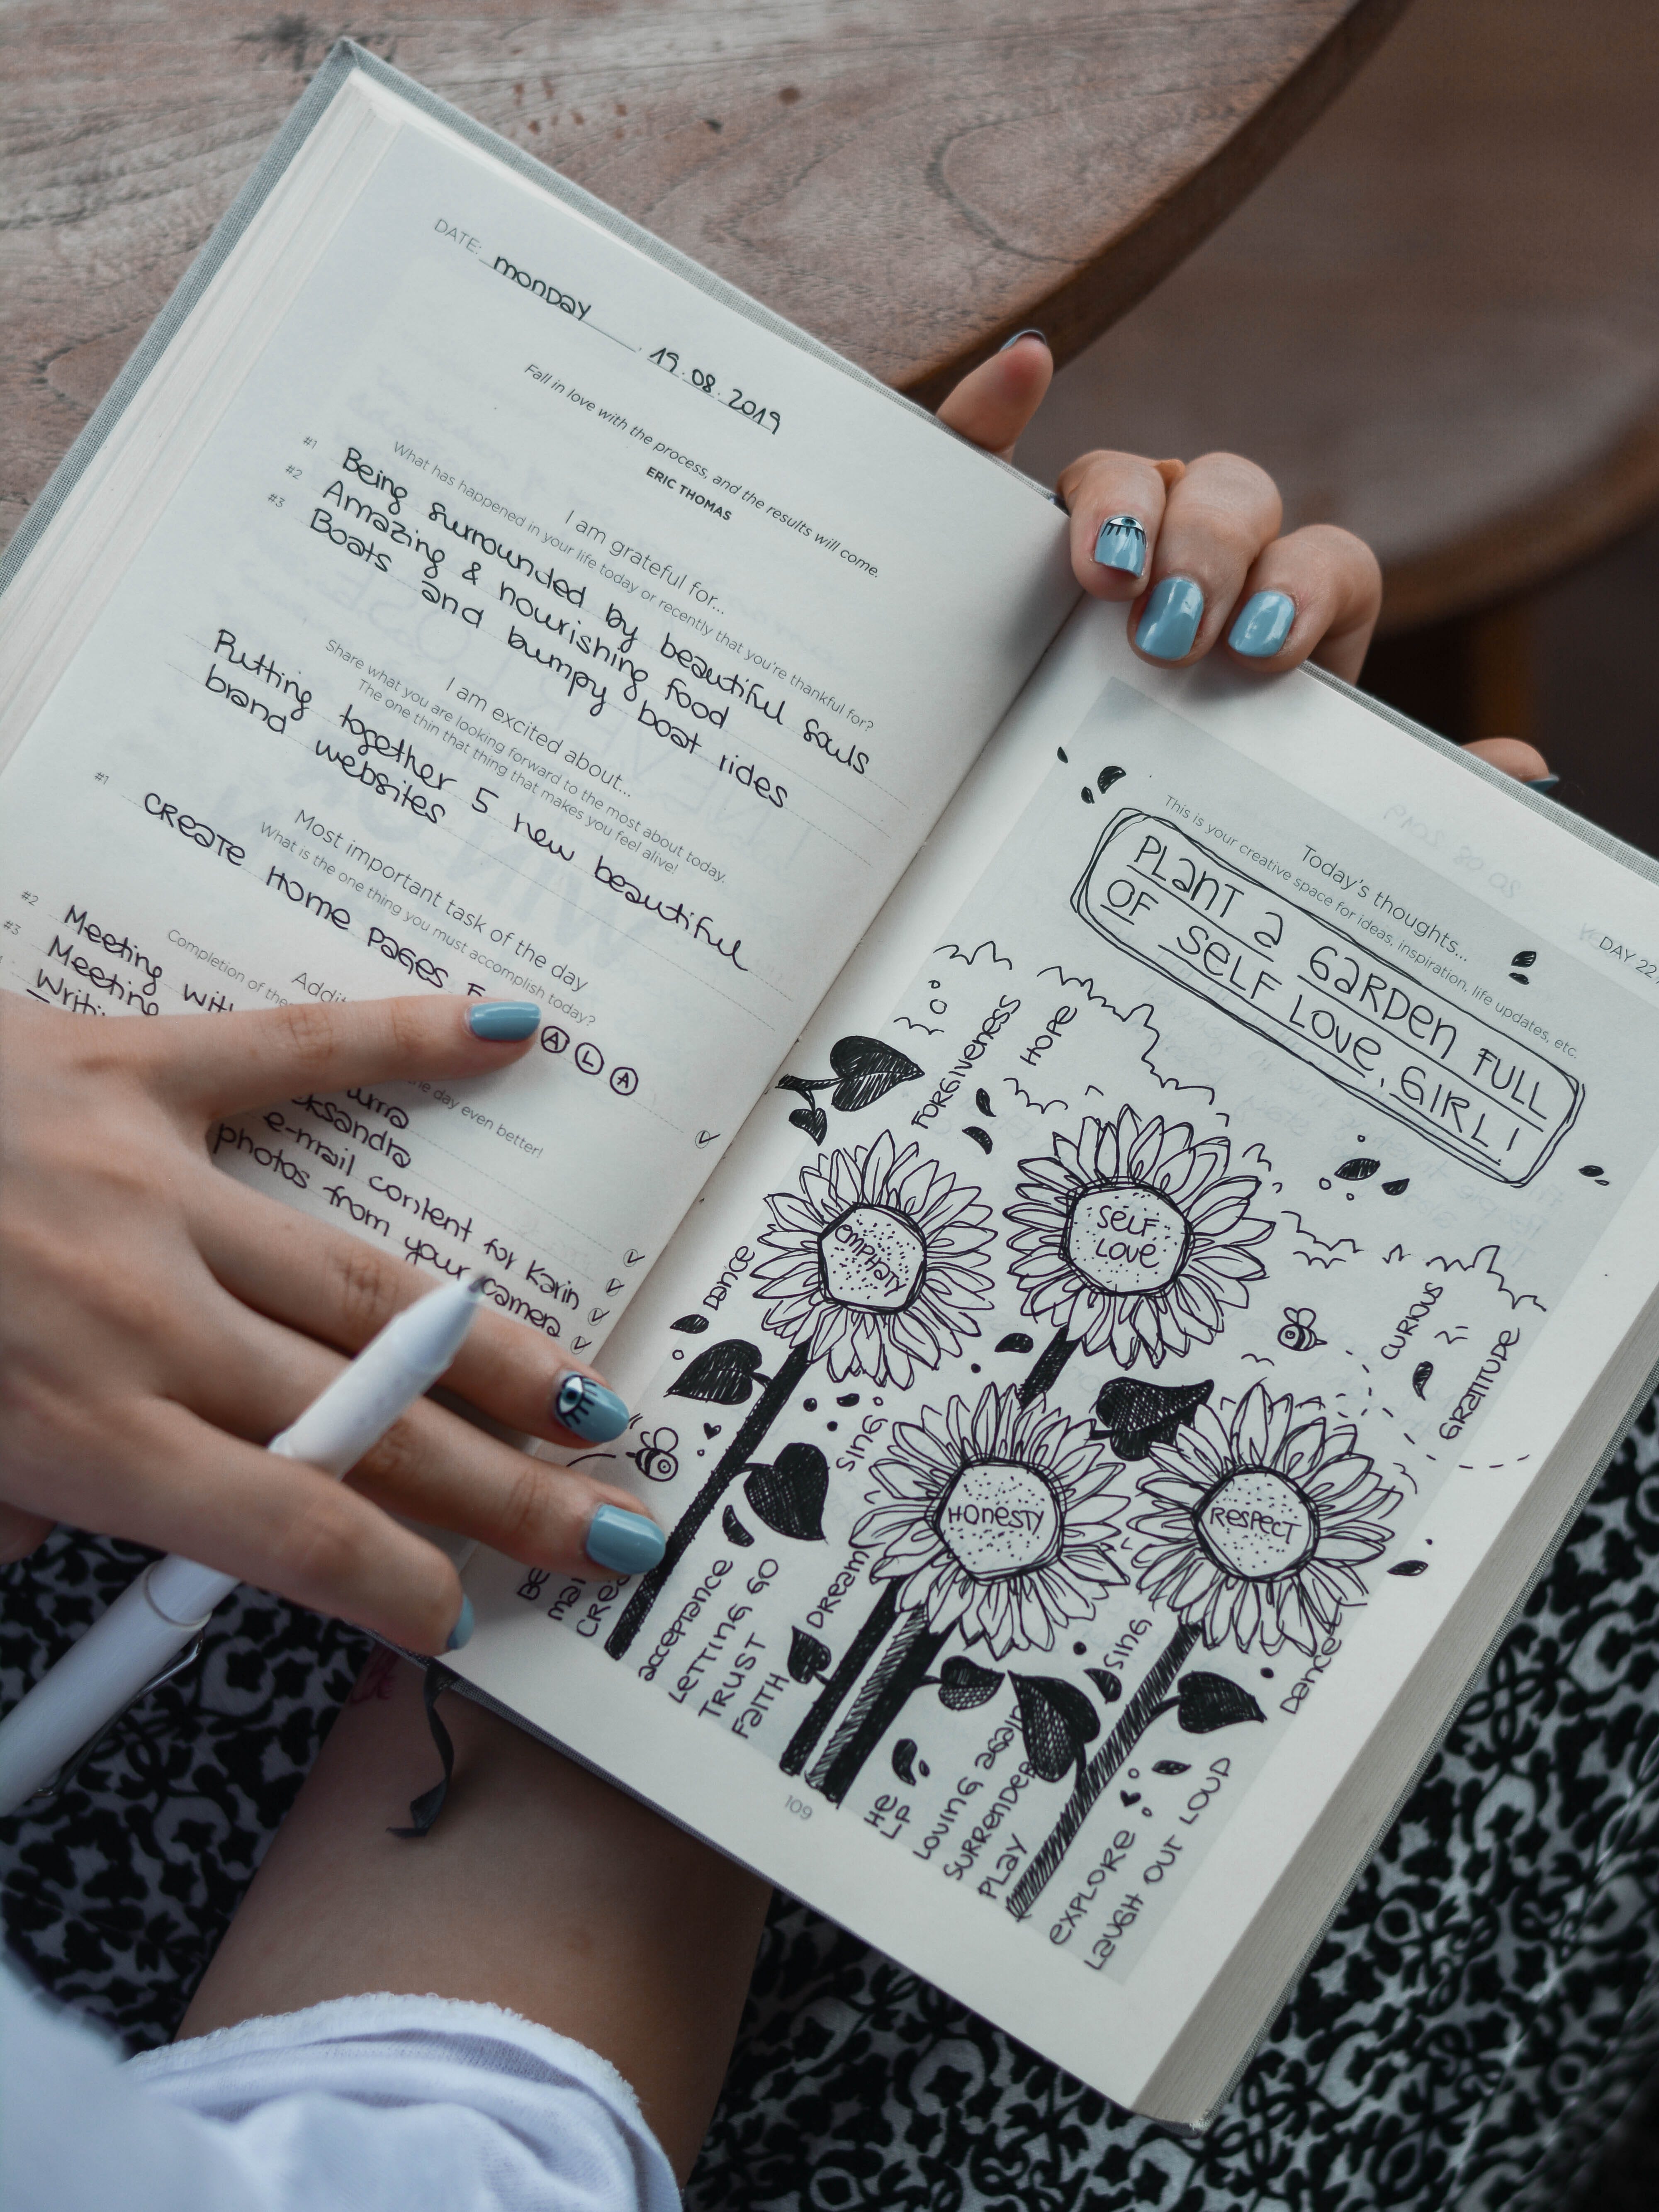 DATE: monday . 19.08.2019
Fall in love with the process, and the results will come.
ERIC THOMAS
I am grateful for...
What has happened in your life today or recently that you're thankful for?
#1 Being surrounded by beautiful souls
#2 Amazing & nourishing food
#3 Boats and bumpy boat rides
I am excited about...
Share what you are looking forward to the most about today.
The one thin that thing that makes you feel alive!
Putting together 5 new beautiful
brand websites
Most important task of the day
What is the one thing you must accomplish today?
#1 CREATE HOME PAGES
A L A
Completion of
the day even better!
#2 Meeting
#3 Meeting
e-mail content for Karin
photos from your camera
DAY 22
Today's thoughts...
This is your creative space for ideas, inspiration, life updates, etc.
PLANT A GARDEN FULL
OF SELF LOVE, GIRL!
FORGIVENESS
HOPE
EMPHATY
SELF
LOVE
DANCE
CURIOUS
GRATITUDE
SING
HONESTY
RESPECT
DREAM
SING
DANCE
ACCEPTANCE
LETTING GO
TRUST
FAITH
HE
LP
LOVING AGAIN
SURRENDER
PLAY
EXPLORE
LAUGH OUT LOUD
109